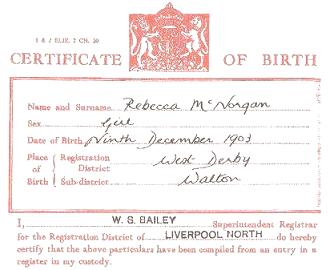 1 & 2 ELIZ. 2 CH. 20
CERTIFICATE OF BIRTH
Name and Surname Rebecca McVorgan
Sex Girl
Date of Birth Ninth December 1903
Place of Birth { Registration District West Derby
Sub-district Walton
I, W. S. BAILEY Superintendent Registrar
for the Registration District of LIVERPOOL NORTH do hereby
certify that the above particulars have been compiled from an entry in a
register in my custody.